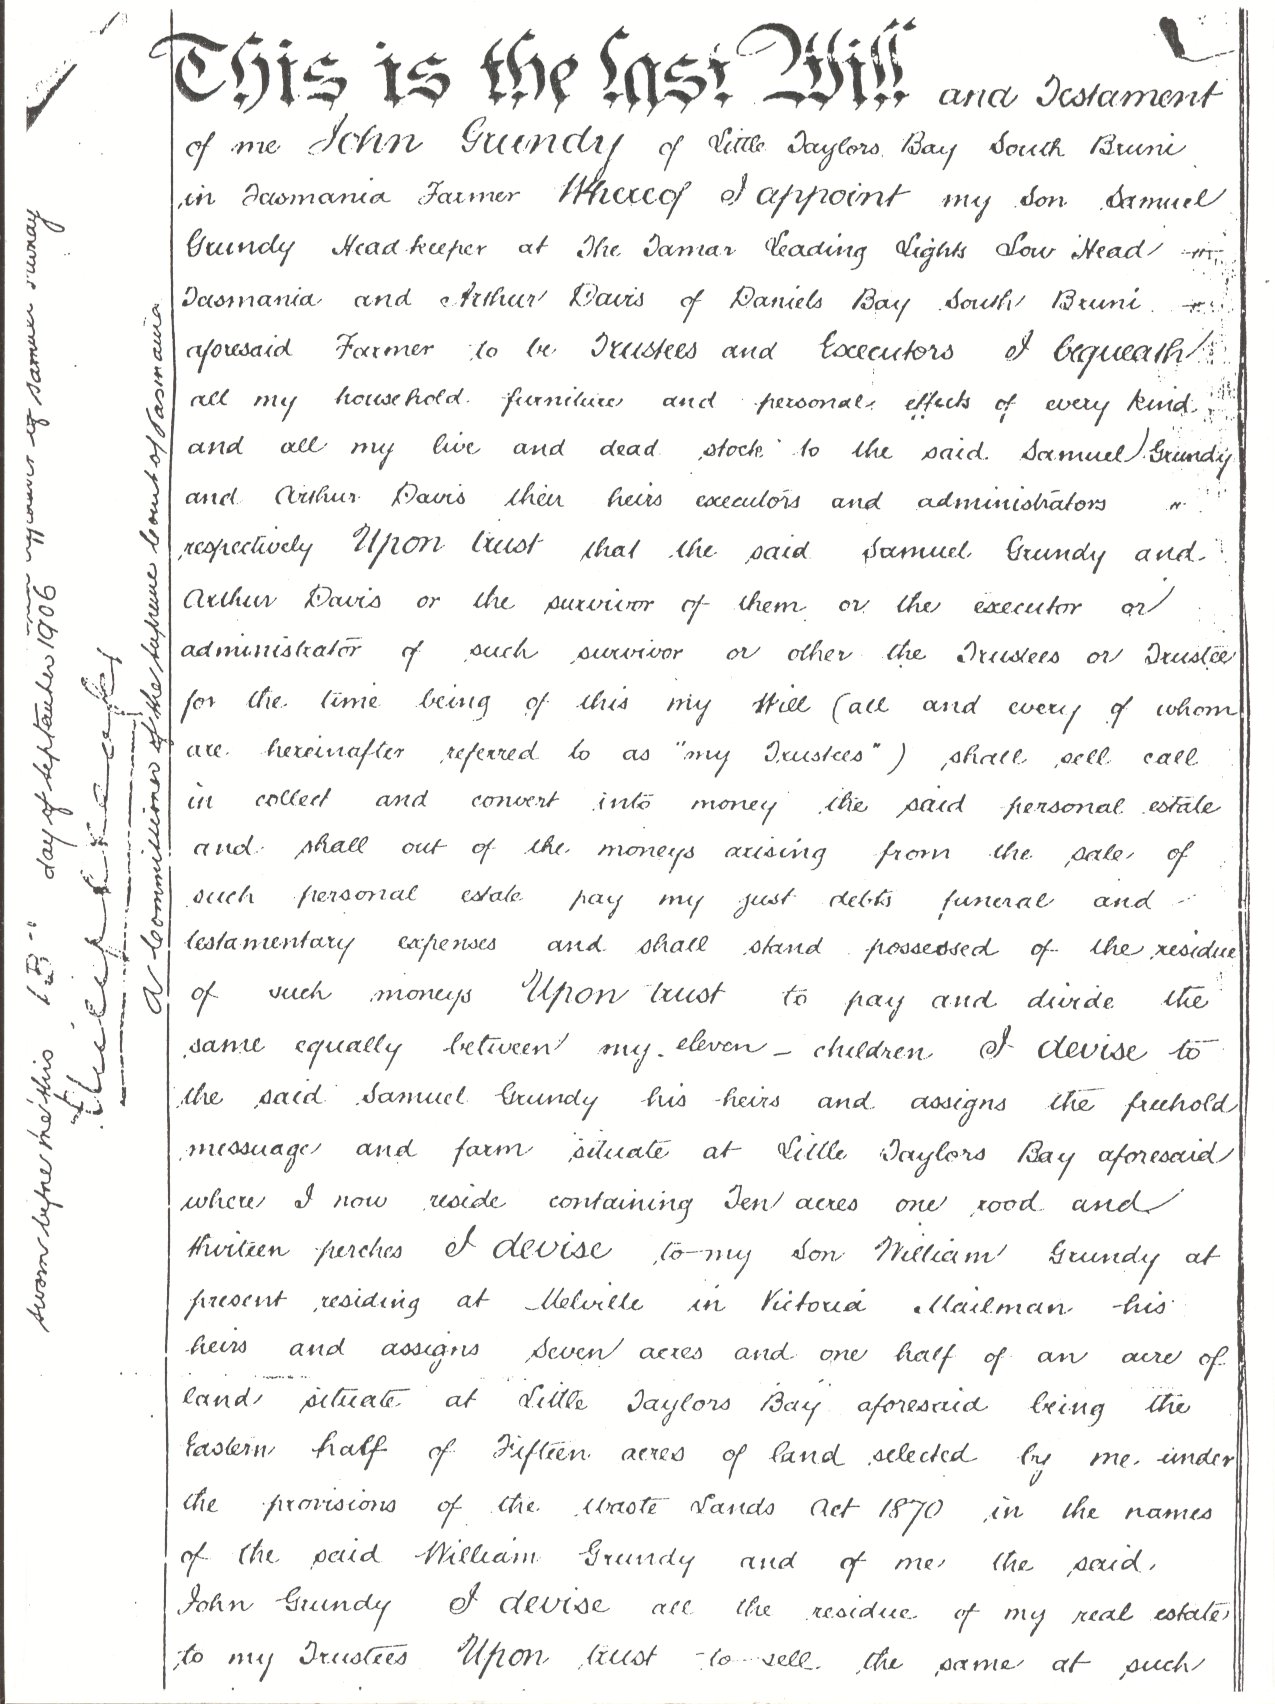 This is the last Will and Testament
of me John Grundy of Little Taylors Bay South Bruni
in Tasmania Farmer Whereof I appoint my Son Samuel
Grundy Head keeper at The Tamar Leading Lights Low Head
Tasmania and Arthur Davis of Daniels Bay South Bruni
aforesaid Farmer to be Trustees and Executors I bequeath
all my household furniture and personal effects of every kind
and all my live and dead stock to the said Samuel Grundy
and Arthur Davis their heirs executors and administrators "
respectively Upon trust that the said Samuel Grundy and
Arthur Davis or the survivor of them or the executor or
administrator of such survivor or other the Trustees or Trustee
for the time being of this my Will (all and every of whom
are hereinafter referred to as "my Trustees") shall sell call
in collect and convert into money the said personal estate
and shall out of the moneys arising from the sale of
such personal estate pay my just debts funeral and
testamentary expenses and shall stand possessed of the residue
of such moneys Upon trust to pay and divide the
same equally between my eleven children I devise to
the said Samuel Grundy his heirs and assigns the freehold
messuage and farm situate at Little Taylors Bay aforesaid
where I now reside containing Ten acres one rood and
thirteen perches I devise to my Son William Grundy at
present residing at Melville in Victoria Mailman his
heirs and assigns Seven acres and one half of an acre of
land situate at Little Taylors Bay aforesaid being the
Eastern half of Fifteen acres of land selected by me under
the provisions of the Waste Lands Act 1870 in the names
of the said William Grundy and of me the said
John Grundy I devise all the residue of my real estate
to my Trustees Upon trust to sell the same at such
of Samuel Murray
Sworn before me this day of September 1906
A Commissioner of the Supreme Court of Tasmania